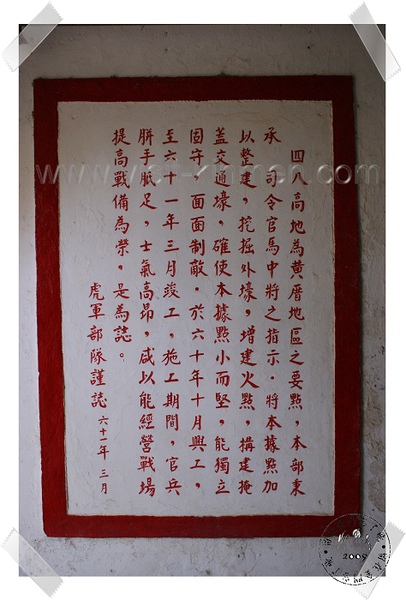 四八高地為黄厝地區之要點，本部秉
承 司令官馬中將之指示．將本據點加
以整建，挖掘外壕，增建火點，構建掩
蓋交通壕，確使本據點小而堅，能獨立
固守，面面制敵．於六十年十月興工，
至六十一年三月竣工，施工期間，官兵
胼手胝足，士氣高昂，咸以能經營戰場
提高戰備為榮，是為誌。
虎軍部隊謹誌 六十一年 三月